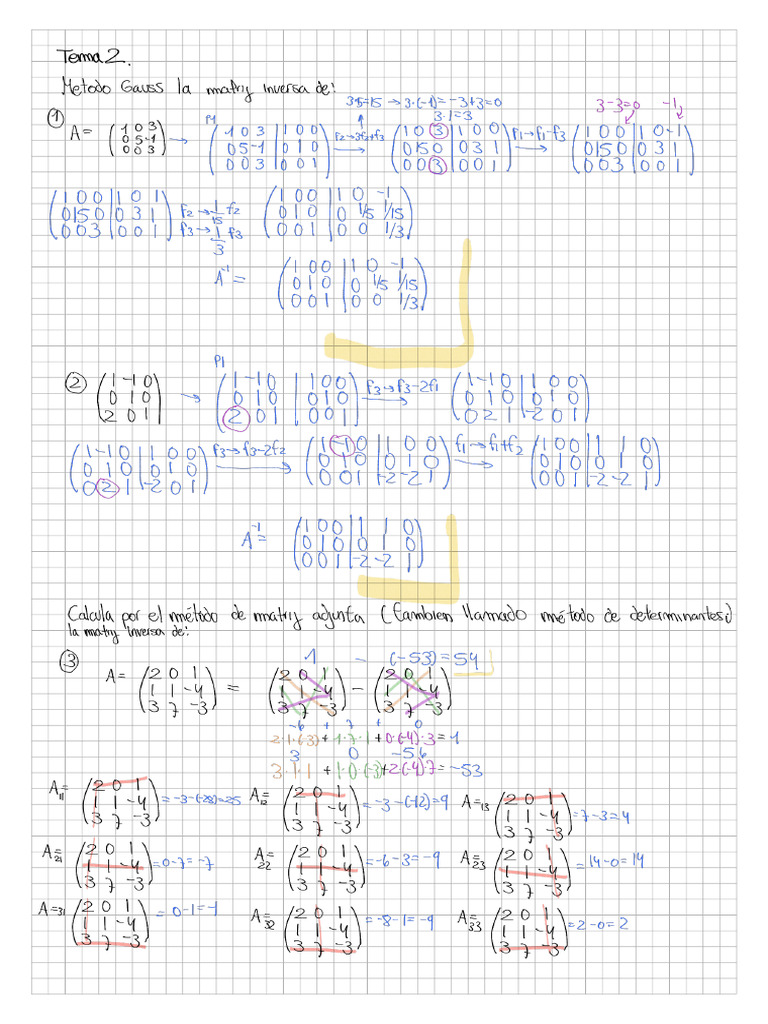 Tema 2.
Metodo Gauss la matriz inversa de:
3·5=15 → 3·(-1) = -3+3=0
3·1=3
3-3=0 -1
① A = (1 0 3 / 0 5 -1 / 0 0 3) → P1 (1 0 3 | 1 0 0 / 0 5 -1 | 0 1 0 / 0 0 3 | 0 0 1) f2→3f2+f3 (1 0 3 | 1 0 0 / 0 15 0 | 0 3 1 / 0 0 3 | 0 0 1) f1→f1-f3 (1 0 0 | 1 0 -1 / 0 15 0 | 0 3 1 / 0 0 3 | 0 0 1)
(1 0 0 | 1 0 1 / 0 15 0 | 0 3 1 / 0 0 3 | 0 0 1) f2→1/15 f2 f3→1/3 f3 (1 0 0 | 1 0 -1 / 0 1 0 | 0 1/5 1/15 / 0 0 1 | 0 0 1/3)
A⁻¹ = (1 0 0 | 1 0 -1 / 0 1 0 | 0 1/5 1/15 / 0 0 1 | 0 0 1/3)
② (1 -1 0 / 0 1 0 / 2 0 1) → P1 (1 -1 0 | 1 0 0 / 0 1 0 | 0 1 0 / 2 0 1 | 0 0 1) f3→f3-2f1 (1 -1 0 | 1 0 0 / 0 1 0 | 0 1 0 / 0 2 1 | -2 0 1)
(1 -1 0 | 1 0 0 / 0 1 0 | 0 1 0 / 0 2 1 | -2 0 1) f3→f3-2f2 (1 -1 0 | 1 0 0 / 0 1 0 | 0 1 0 / 0 0 1 | -2 -2 1) f1→f1+f2 (1 0 0 | 1 1 0 / 0 1 0 | 0 1 0 / 0 0 1 | -2 -2 1)
A⁻¹ = (1 0 0 | 1 1 0 / 0 1 0 | 0 1 0 / 0 0 1 | -2 -2 1)
Calcula por el método de matriz adjunta (tambien llamado método de determinantes)
la matriz inversa de:
1 - (-53) = 54
③ A = (2 0 1 / 1 1 -4 / 3 7 -3) = (2 0 1 / 1 1 -4 / 3 7 -3) - (2 0 1 / 1 1 -4 / 3 7 -3)
-6 + 7 + 0
2·1·(-3) + 1·7·1 + 0·(-4)·3 = 1
3 0 -56
3·1·1 + 1·0·(-3) + 2·(-4)·7 = -53
A₁₁ = (2 0 1 / 1 1 -4 / 3 7 -3) = -3-(-28) = 25 A₁₂ = (2 0 1 / 1 1 -4 / 3 7 -3) = -3-(-12) = 9 A₁₃ = (2 0 1 / 1 1 -4 / 3 7 -3) = 7-3 = 4
A₂₁ = (2 0 1 / 1 1 -4 / 3 7 -3) = 0-7 = -7 A₂₂ = (2 0 1 / 1 1 -4 / 3 7 -3) = -6-3 = -9 A₂₃ = (2 0 1 / 1 1 -4 / 3 7 -3) = 14-0 = 14
A₃₁ = (2 0 1 / 1 1 -4 / 3 7 -3) = 0-1 = -1 A₃₂ = (2 0 1 / 1 1 -4 / 3 7 -3) = -8-1 = -9 A₃₃ = (2 0 1 / 1 1 -4 / 3 7 -3) = 2-0 = 2